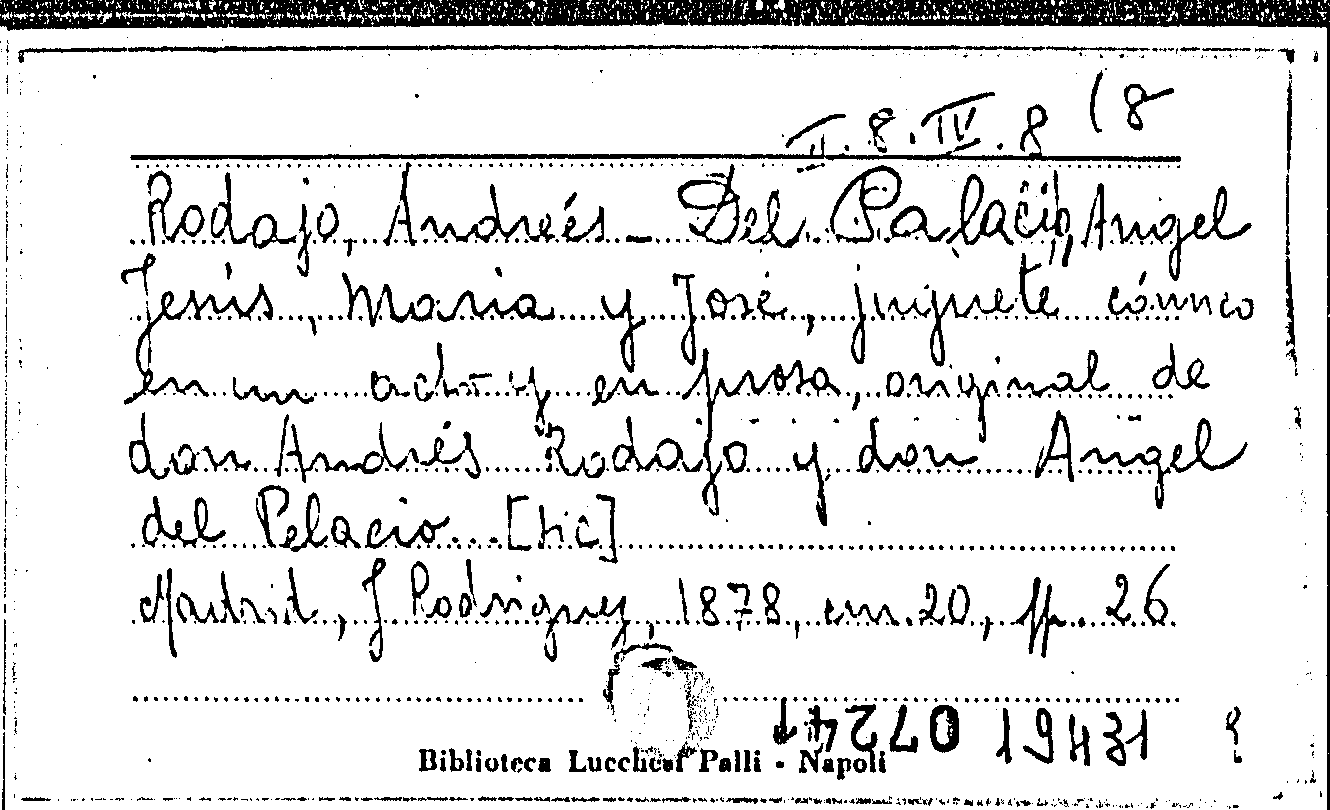 II. 8. IV. 8 (8
Rodajo, Andreés - Del Palacio, Angel
Jesús, Maria y José, juguete cómico
en un acto y en prosa, original de
don Andrés Rodajo y don Angel
del Pelacio... [sic]
Madrid, J Rodriguez, 1878, cm. 20, pp. 26
19431
Biblioteca Lucchesi Palli - Napoli